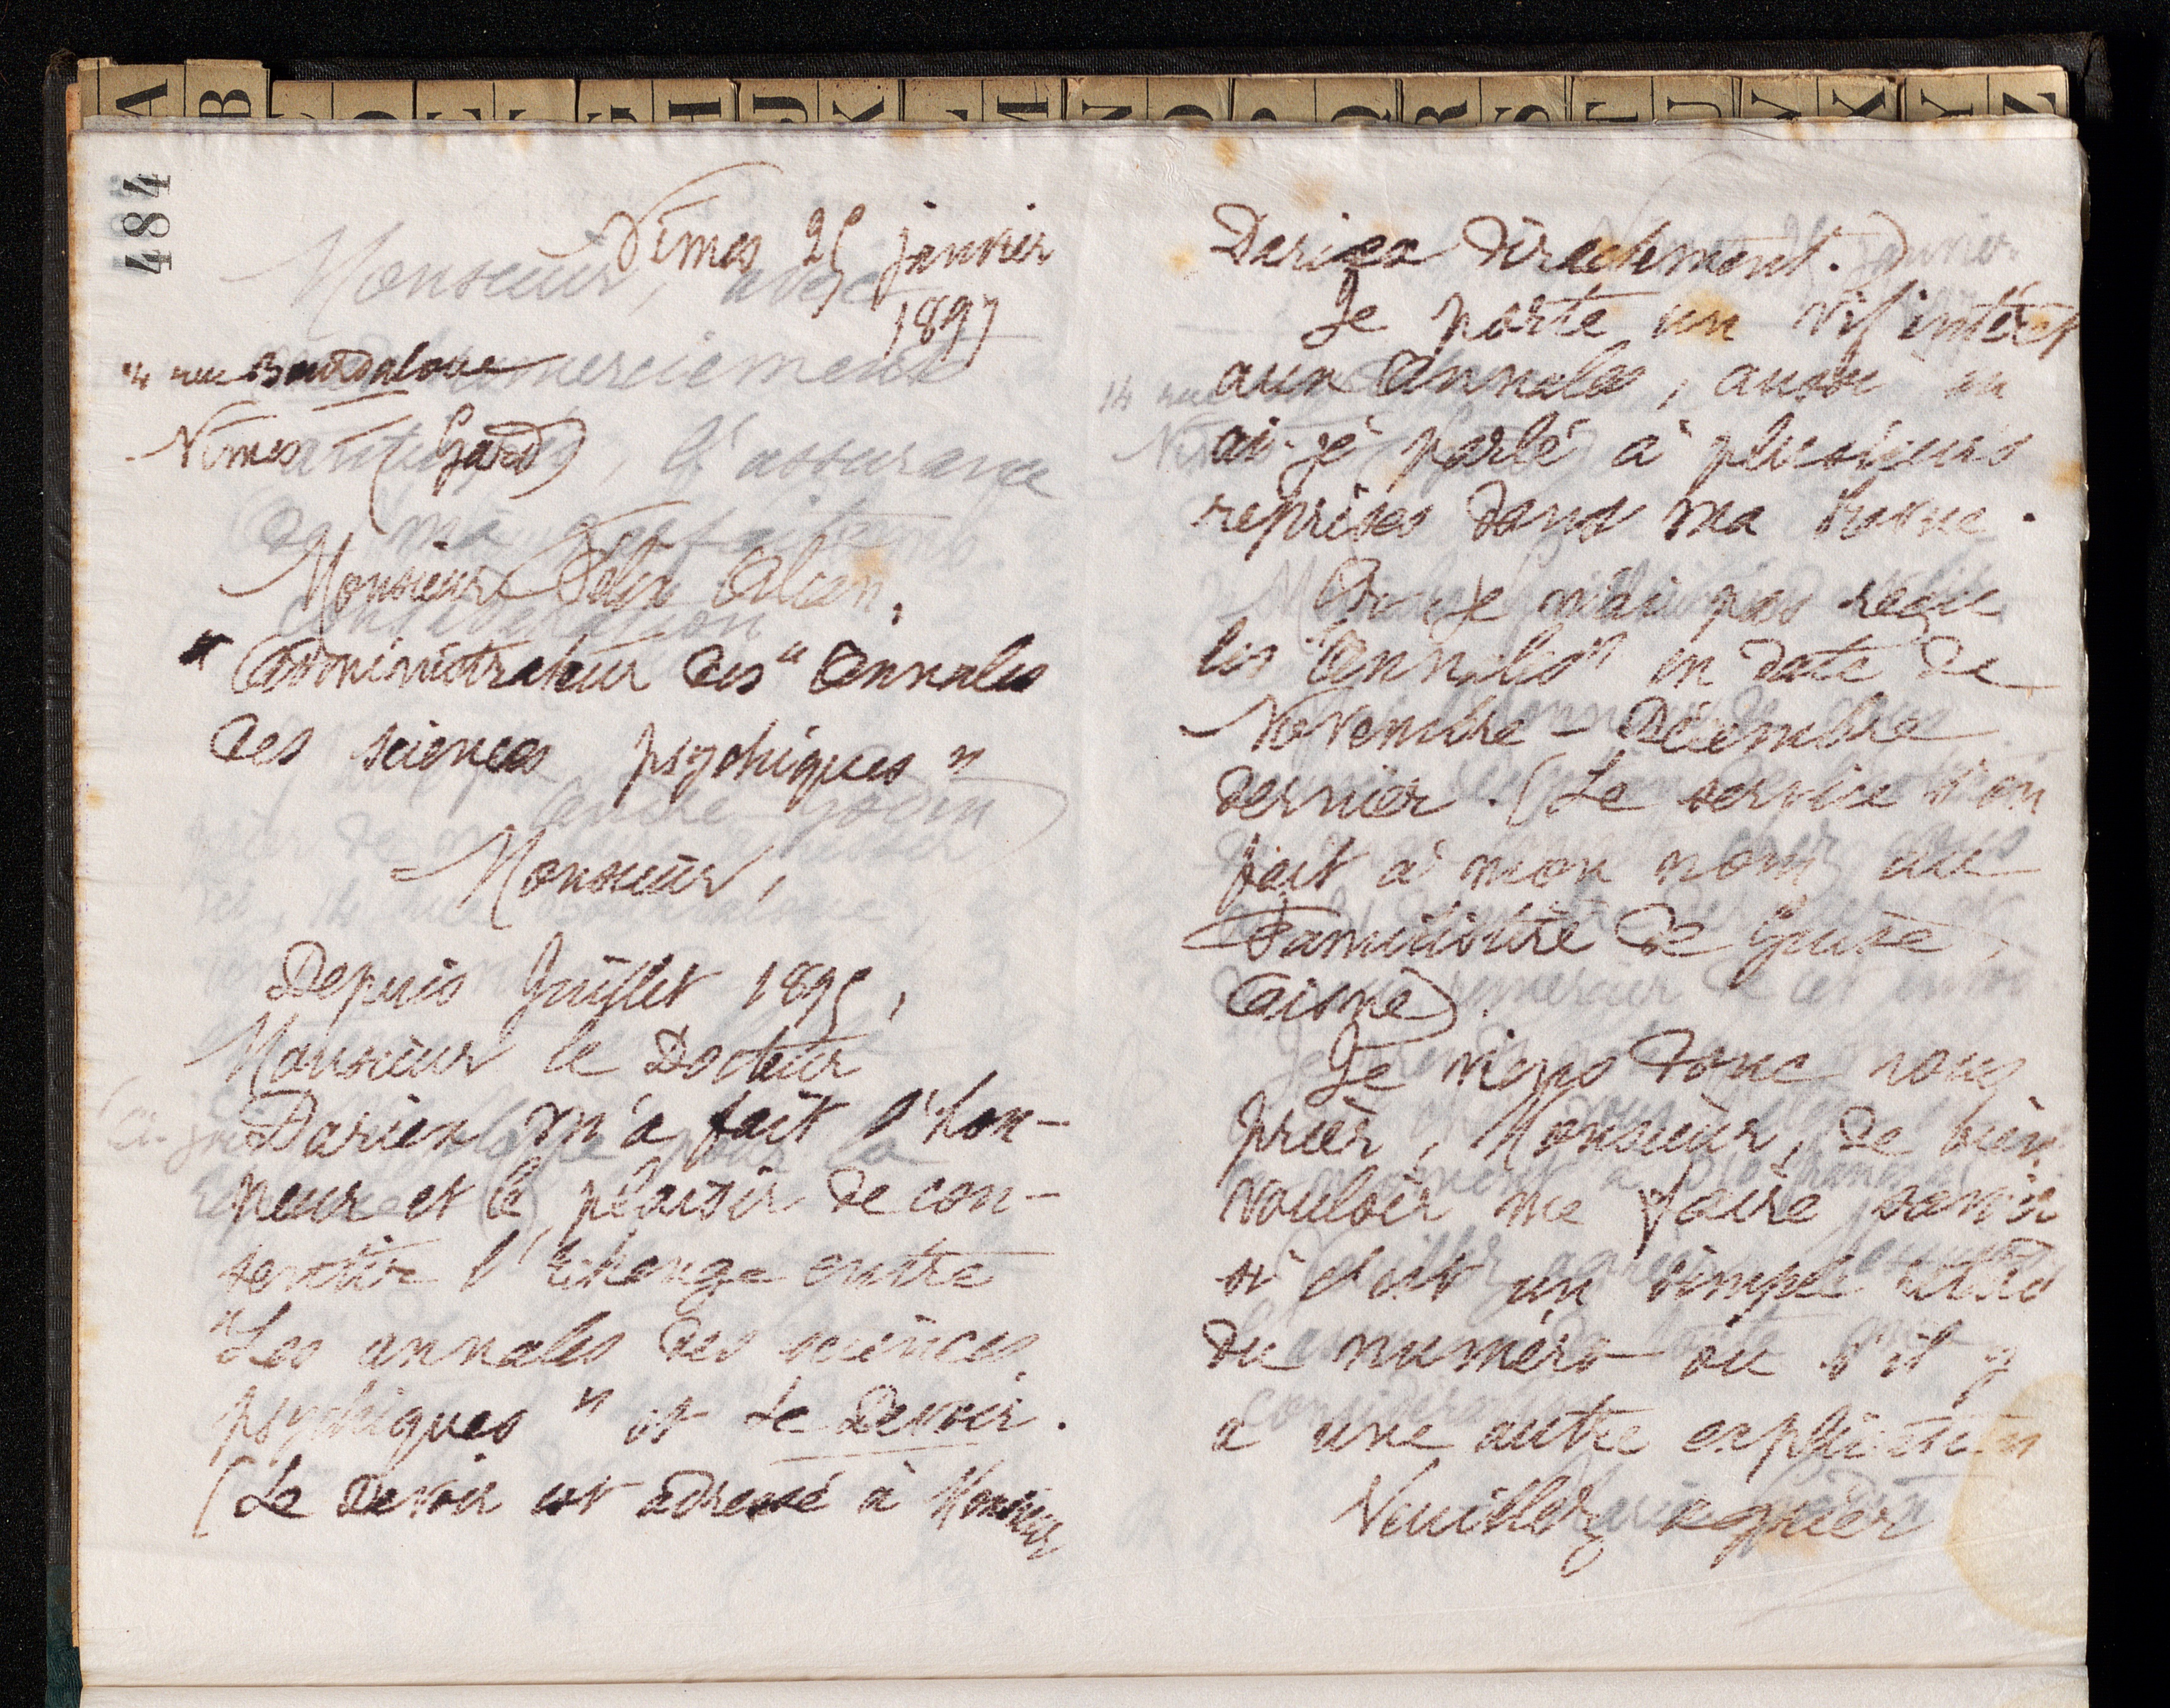 A B I J K L M N O P Q R S T U V X Y Z
484
Nîmes 25 janvier
1897
14 rue Bourdaloue
Nîmes (Gard)
Monsieur Félix Alcan,
"Administrateur des "Annales
des sciences psychiques"
Monsieur,
Depuis Juillet 1895,
Monsieur le Docteur
Dariex m'a fait l'hon-
neur et le plaisir de con-
sentir l'échange entre
"Les annales des sciences
psychiques" et Le Devoir.
(Le Devoir est adressé à Monsieur
Dariex directement.)
Je porte un vif intérêt
aux Annales, aussi en
ai-je parlé à plusieurs
reprises dans ma revue.
Or je n'ai pas reçu
les "Annales" en date de
Novembre - Décembre
dernier. (Le service s'en
fait à mon nom au
Familistère de Guise,
Aisne)
Je viens donc vous
prier, Monsieur, de bien
vouloir me faire savoir
si c'est un simple retard
du numéro ou s'il y
a une autre explication
Veuillez agréer